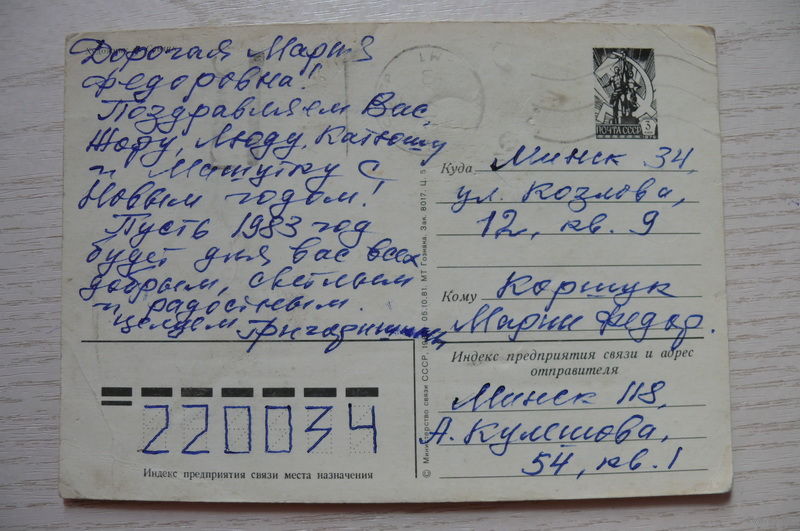 Дорогая Мария
Федоровна!
Поздравляем Вас,
Жору, Люду, Катюшу
и Машутку с
Новым годом!
Пусть 1983 год
будет для вас всех
добрым, светлым
и радостным.
Целуем
ПОЧТА СССР 3
Куда Минск 34,
ул. Козлова,
12, кв. 9
Кому Коршук
Марии Федор.
Индекс предприятия связи и адрес
отправителя
Минск 118,
А. Кулешова,
54, кв. 1
220034
Индекс предприятия связи места назначения
© Министерство связи СССР, 05.10.81. МТ Гознака. Зак. 8017. Ц. 5